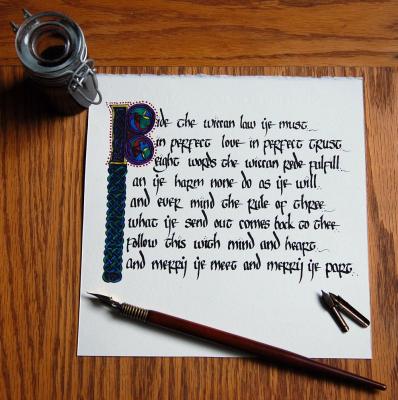 Bide the wiccan law ye must
in perfect love in perfect trust
Eight words the wiccan rede fulfill
an ye harm none do as ye will
and ever mind the rule of three
what ye send out comes back to thee
follow this with mind and heart
and merry ye meet and merry ye part.